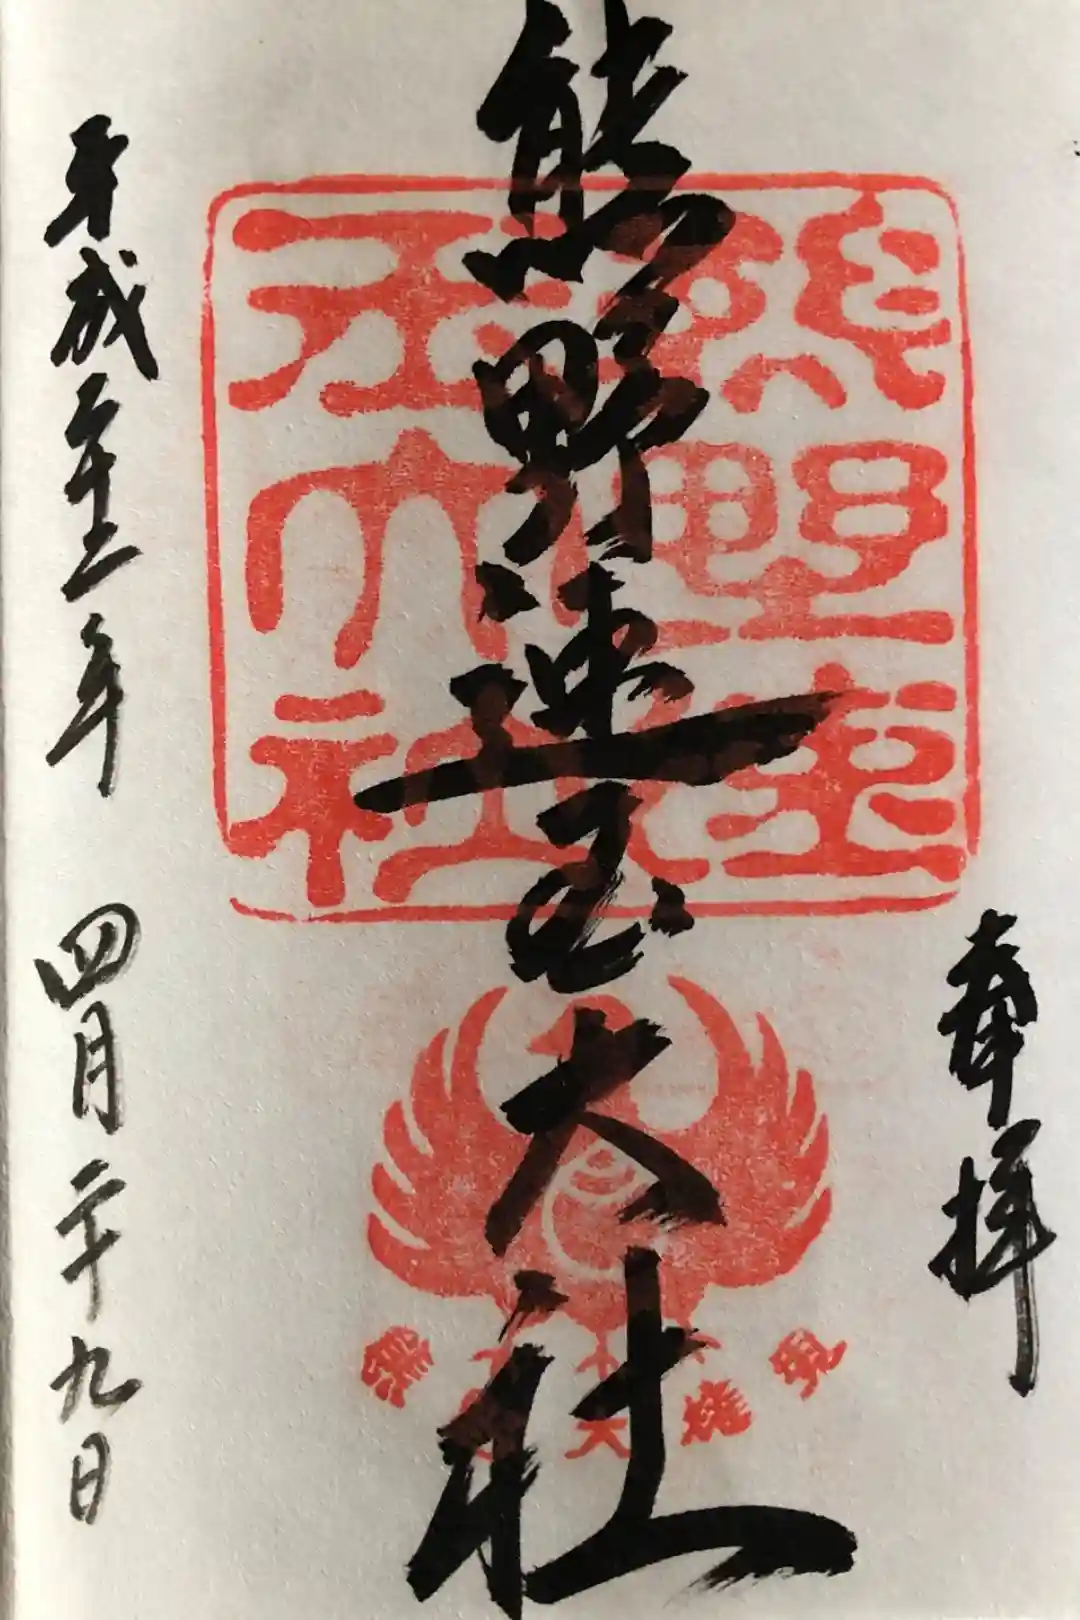 奉拝
熊野速玉大社
平成二十三年 四月二十九日
熊野大権現